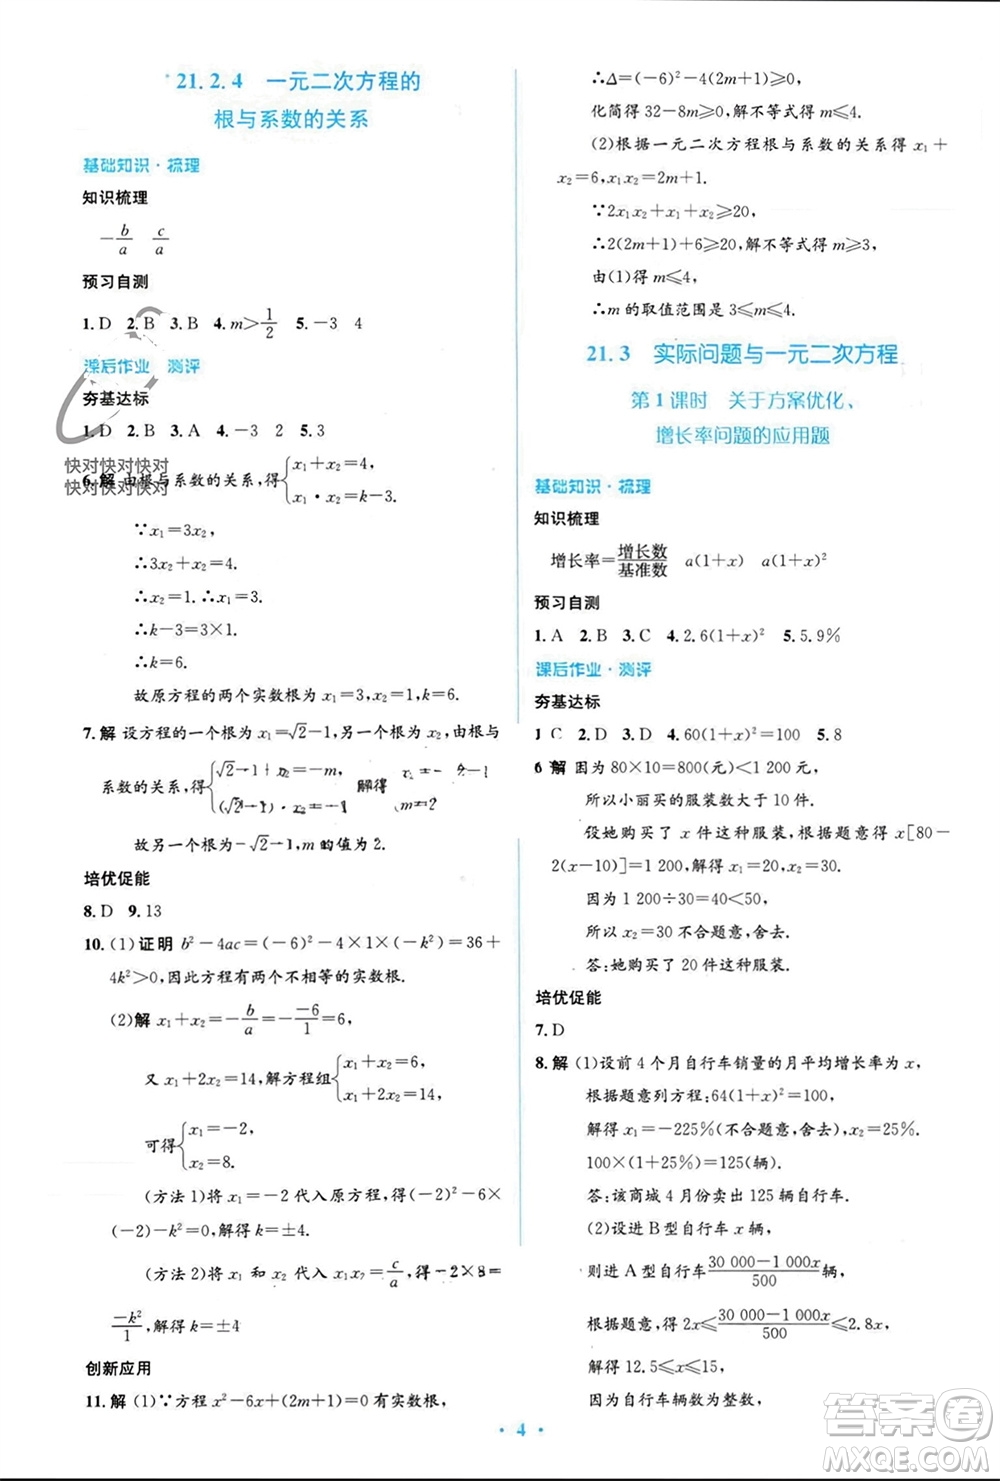 21.2.4 一元二次方程的
根与系数的关系
基础知识·梳理
知识梳理
-b/a c/a
预习自测
1.D 2.B 3.B 4.m>1/2 5.-3 4
课后作业 测评
夯基达标
1.D 2.B 3.A 4.-3 2 5.3
快对快对快对
快对快对快对
6.解 由根与系数的关系,得{x₁+x₂=4,
x₁·x₂=k-3.
∵x₁=3x₂,
∴3x₂+x₂=4.
∴x₂=1.∴x₁=3.
∴k-3=3×1.
∴k=6.
故原方程的两个实数根为 x₁=3,x₂=1,k=6.
7.解 设方程的一个根为 x₁=√2-1,另一个根为 x₂,由根与
系数的关系,得{√2-1+x₂=-m, 解得
(√2-1)·x₂=-1, m=2
故另一个根为-√2-1,m的值为 2.
培优促能
8.D 9.13
10.(1)证明 b²-4ac=(-6)²-4×1×(-k²)=36+
4k²>0,因此方程有两个不相等的实数根.
(2)解 x₁+x₂=-b/a=--6/1=6,
又 x₁+2x₂=14,解方程组{x₁+x₂=6,
x₁+2x₂=14,
可得{x₁=-2,
x₂=8.
(方法1)将 x₁=-2 代入原方程,得(-2)²-6×
(-2)-k²=0,解得 k=±4.
(方法2)将 x₁ 和 x₂ 代入 x₁x₂=c/a,得-2×8=
-k²/1,解得 k=±4
创新应用
11.解 (1)∵方程 x²-6x+(2m+1)=0 有实数根,
∴Δ=(-6)²-4(2m+1)≥0,
化简得 32-8m≥0,解不等式得 m≤4.
(2)根据一元二次方程根与系数的关系得 x₁+
x₂=6,x₁x₂=2m+1.
∵2x₁x₂+x₁+x₂≥20,
∴2(2m+1)+6≥20,解不等式得 m≥3,
由(1)得 m≤4,
∴m 的取值范围是 3≤m≤4.
21.3 实际问题与一元二次方程
第1课时 关于方案优化、
增长率问题的应用题
基础知识·梳理
知识梳理
增长率=增长数/基准数 a(1+x) a(1+x)²
预习自测
1.A 2.B 3.C 4.2.6(1+x)² 5.5.9%
课后作业·测评
夯基达标
1 C 2.D 3.D 4.60(1+x)²=100 5.8
6 解 因为 80×10=800(元)<1 200 元,
所以小丽买的服装数大于 10 件.
设她购买了 x 件这种服装,根据题意得 x[80-
2(x-10)]=1 200,解得 x₁=20,x₂=30.
因为 1 200÷30=40<50,
所以 x₂=30 不合题意,舍去.
答:她购买了 20 件这种服装.
培优促能
7.D
8.解 (1)设前 4 个月自行车销量的月平均增长率为 x,
根据题意列方程:64(1+x)²=100,
解得 x₁=-225%(不合题意,舍去),x₂=25%.
100×(1+25%)=125(辆).
答:该商城 4 月份卖出 125 辆自行车.
(2)设进 B 型自行车 x 辆,
则进 A 型自行车30 000-1 000x/500辆,
根据题意,得 2x≤30 000-1 000x/500≤2.8x,
解得 12.5≤x≤15.
因为自行车辆数为整数,
·4·
答案圈
MXQE.COM